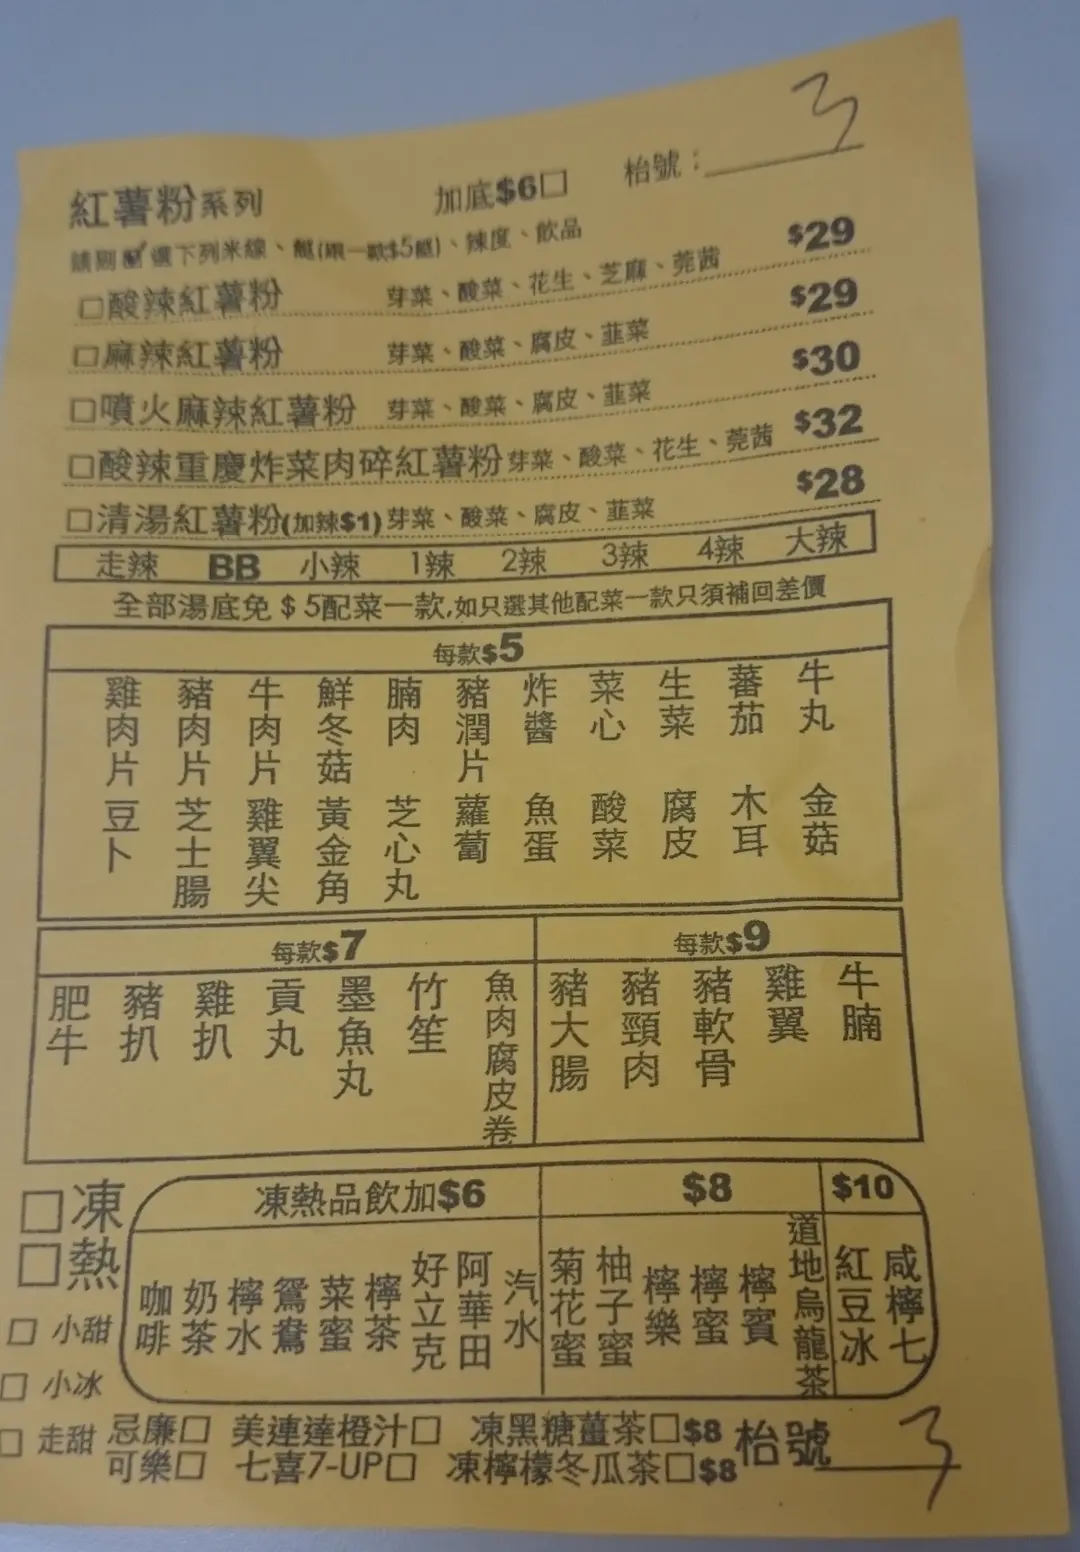 3
紅薯粉系列 加底$6□ 枱號：
請剔選下列米線、餸(跟一款$5餸)、辣度、飲品
□酸辣紅薯粉 芽菜、酸菜、花生、芝麻、莞茜 $29
□麻辣紅薯粉 芽菜、酸菜、腐皮、韮菜 $29
□噴火麻辣紅薯粉 芽菜、酸菜、腐皮、韮菜 $30
□酸辣重慶炸菜肉碎紅薯粉 芽菜、酸菜、花生、莞茜 $32
□清湯紅薯粉(加辣$1) 芽菜、酸菜、腐皮、韮菜 $28
走辣 BB 小辣 1辣 2辣 3辣 4辣 大辣
全部湯底免$5配菜一款,如只選其他配菜一款只須補回差價
每款$5
雞肉片 豬肉片 牛肉片 鮮冬菇 腩肉 豬潤片 炸醬 菜心 生菜 蕃茄 牛丸
豆卜 芝士腸 雞翼尖 黃金角 芝心丸 蘿蔔 魚蛋 酸菜 腐皮 木耳 金菇
每款$7
肥牛 豬扒 雞扒 貢丸 墨魚丸 竹笙 魚肉腐皮卷
每款$9
豬大腸 豬頸肉 豬軟骨 雞翼 牛腩
□凍
□熱
□ 小甜
□ 小冰
□ 走甜
凍熱品飲加$6
咖啡 奶茶 檸水 鴛鴦 菜蜜 檸茶 好立克 阿華田 汽水
$8
菊花蜜 柚子蜜 檸樂 檸蜜 檸賓 道地烏龍茶
$10
紅豆冰 咸檸七
忌廉□ 美連達橙汁□ 凍黑糖薑茶□$8
可樂□ 七喜7-UP□ 凍檸檬冬瓜茶□$8
枱號 3